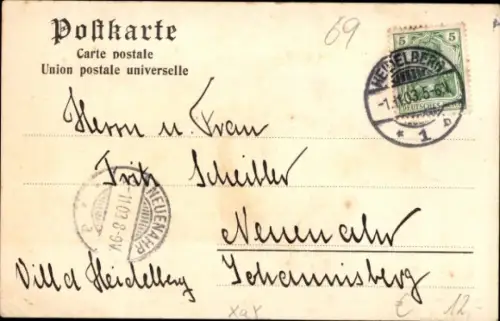 Postkarte
Carte postale
Union postale universelle
69
5 5
HEIDELBERG
-1.11.03.5-6N.
* 1. b
DEUTSCHES
Herrn u. Frau
Fritz Scheibler
NEUENAHR
11.03.8-9V.
Neuenahr
Villa Heidelberg
Johannisberg
12.-